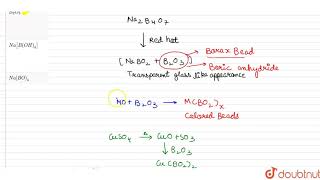 Na2B4O7
Red hot
[NaBO2 + B2O3] → Borax Bead
Boric anhydride
Transparent glass like appearance
Na[B(OH)4]
Na(BO)4
MO + B2O3 → M(BO2)x
Colored Beads
CuSO4 → CuO + SO3
B2O3
Cu(BO2)2
doubtnut